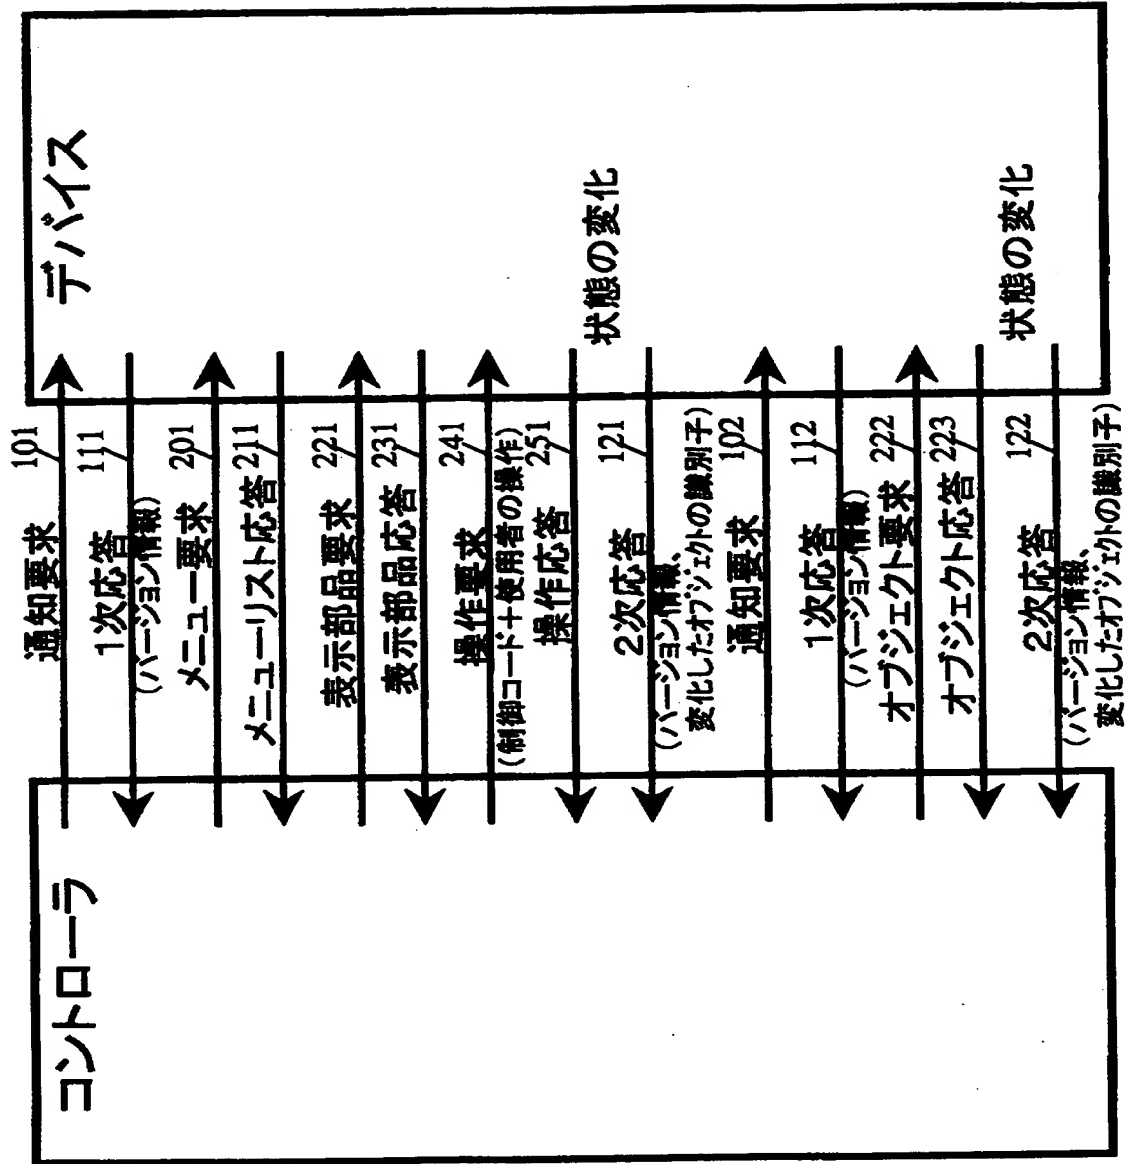 コントローラ
デバイス
通知要求 101
1次応答 111
(バージョン情報)
メニュー要求 201
メニューリスト応答 211
表示部品要求 221
表示部品応答 231
操作要求 241
(制御コード+使用者の操作)
操作応答 251
状態の変化
2次応答 121
(バージョン情報、
変化したオブジェクトの識別子)
通知要求 102
1次応答 112
(バージョン情報)
オブジェクト要求 222
オブジェクト応答 223
状態の変化
2次応答 122
(バージョン情報、
変化したオブジェクトの識別子)